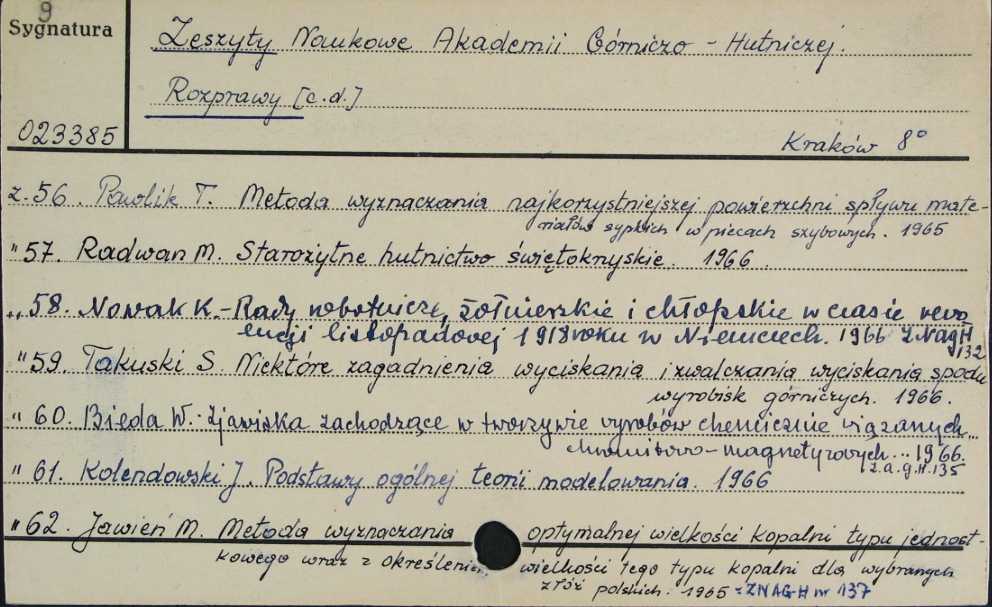 9
Sygnatura
Zeszyty Naukowe Akademii Górniczo - Hutniczej.
Rozprawy [c.d.]
023385
Kraków 8°
z. 56. Pawlik T. Metoda wyznaczania najkorzystniejszej powierzchni spływu mate-
riałów sypkich w piecach szybowych. 1965
" 57. Radwan M. Starożytne hutnictwo świętokrzyskie. 1966.
" 58. Nowak K. - Rady robotnicze, żołnierskie i chłopskie w czasie rewo
lucji listopadowej 1918 roku w Niemczech. 1966 ZNAGH
132
" 59. Takuski S. Niektóre zagadnienia wyciskania i zwalczania wyciskania spodu
wyrobisk górniczych. 1966.
" 60. Bieda W. Zjawiska zachodzące w tworzywie wyrobów chemicznie wiązanych...
chromitowo-magnezytowych... 1966.
z.a.g.H. 135
" 61. Kolendowski J. Podstawy ogólnej teorii modelowania. 1966
" 62. Jawień M. Metoda wyznaczania optymalnej wielkości kopalni typu jednost-
kowego wraz z określeniem wielkości tego typu kopalni dla wybranych
złóż polskich. 1965 = ZNAG-H nr 137